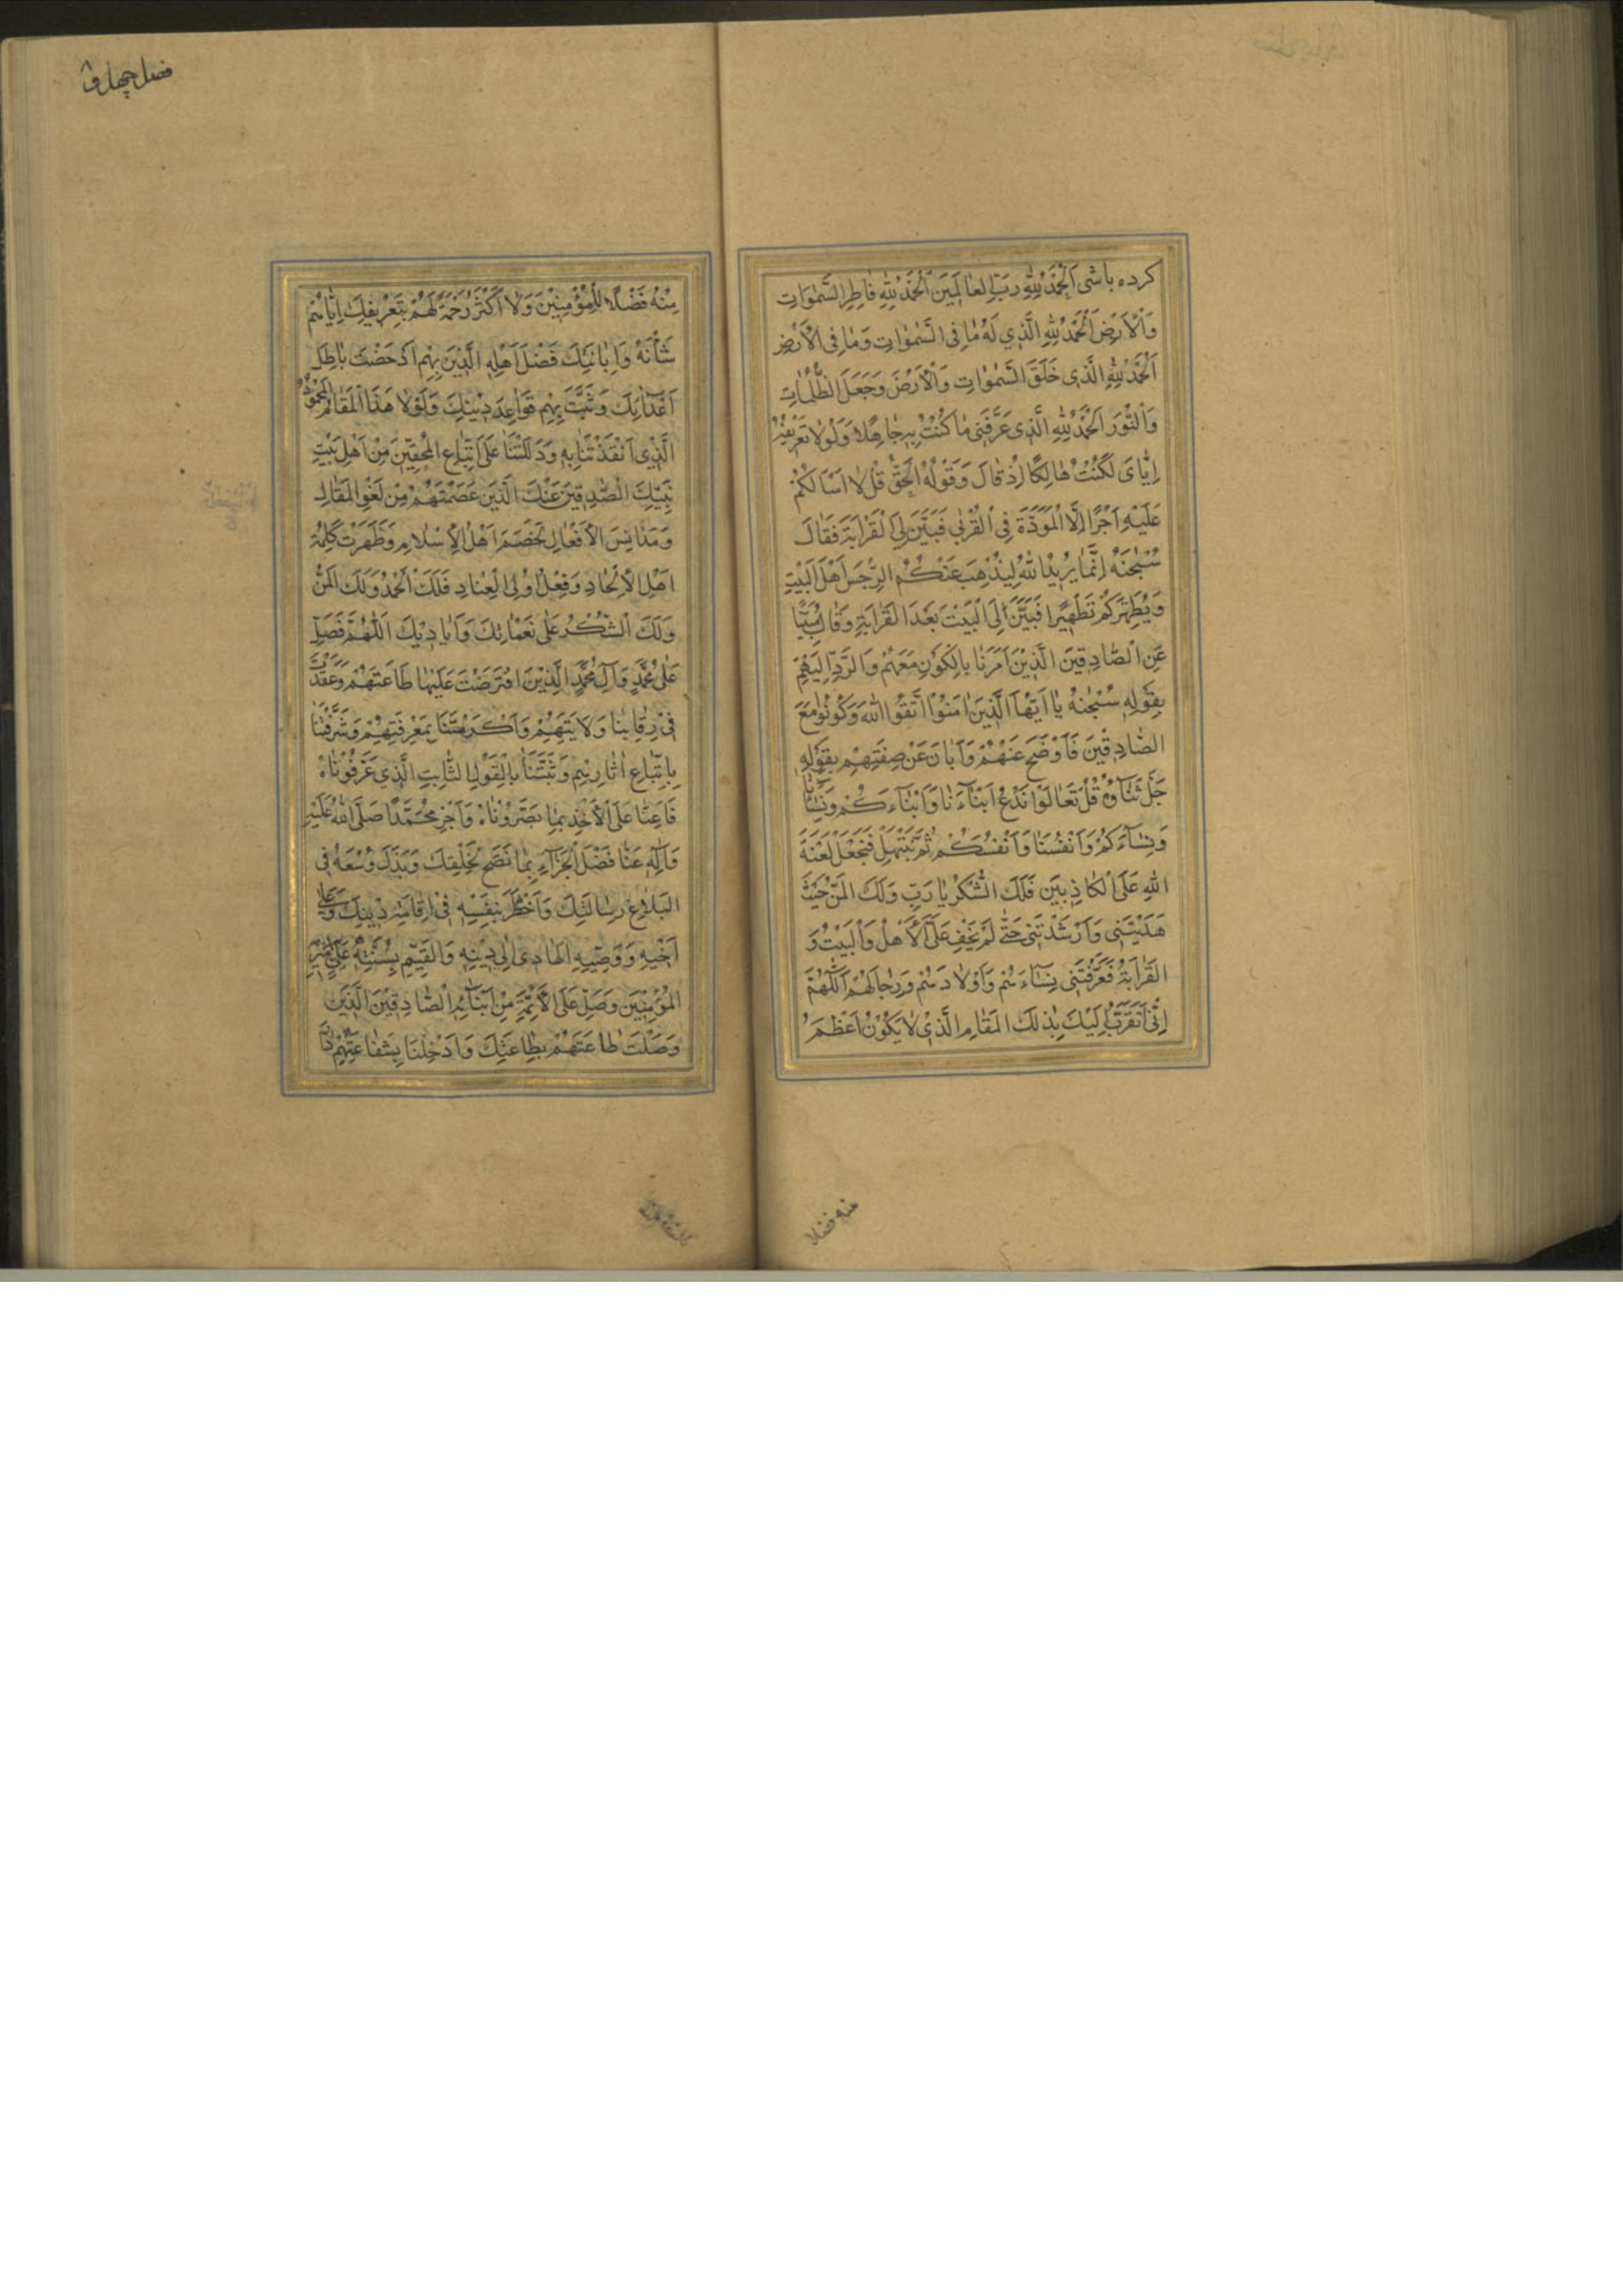 کرده باشی اَلْحَمْدُ لِلّٰهِ رَبِّ الْعالَمینَ اَلْحَمْدُ لِلّٰهِ فاطِرِ السَّمٰوَاتِ
وَالْاَرْضِ اَلْحَمْدُ لِلّٰهِ الَّذی لَهُ مٰا فِی السَّمٰوٰاتِ وَمٰا فِی الْاَرْضِ
اَلْحَمْدُ لِلّٰهِ الَّذی خَلَقَ السَّمٰوٰاتِ وَالْاَرْضَ وَجَعَلَ الظُّلُمٰاتِ
وَالنُّورَ اَلْحَمْدُ لِلّٰهِ الَّذی عَرَّفَنی مٰا کُنْتُ بِهِ جٰاهِلًا وَلَوْلٰا تَعْریفُهُ
اِیّٰایَ لَکُنْتُ هٰالِکًا اِذْ قٰالَ وَقَوْلُهُ الْحَقُّ قُلْ لٰا اَسْاَلُکُمْ
عَلَیْهِ اَجْرًا اِلَّا الْمَوَدَّةَ فِی الْقُرْبٰی فَبَیَّنَ لِیَ الْقَرٰابَةَ فَقٰالَ
سُبْحٰنَهُ اِنَّمٰا یُریدُ اللّٰهُ لِیُذْهِبَ عَنْکُمُ الرِّجْسَ اَهْلَ الْبَیْتِ
وَیُطَهِّرَکُمْ تَطْهیرًا فَبَیَّنَ لِیَ الْبَیْتَ بَعْدَ الْقَرٰابَةِ وَقٰالَ
عَنِ الصّٰادِقینَ الَّذینَ اَمَرَنٰا بِالْکَوْنِ مَعَهُمْ وَالرَّدِّ اِلَیْهِمْ
بِقَوْلِهِ سُبْحٰنَهُ یٰا اَیُّهَا الَّذینَ اٰمَنُوا اتَّقُوا اللّٰهَ وَکُونُوا مَعَ
الصّٰادِقینَ فَاَوْضَحَ عَنْهُمْ وَاَبٰانَ عَنْ صِفَتِهِمْ بِقَوْلِهِ
جَلَّ ثَنٰاؤُهُ قُلْ تَعٰالَوْا نَدْعُ اَبْنٰاءَنٰا وَاَبْنٰاءَکُمْ وَنِسٰاءَنٰا
وَنِسٰاءَکُمْ وَاَنْفُسَنٰا وَاَنْفُسَکُمْ ثُمَّ نَبْتَهِلْ فَنَجْعَلْ لَعْنَةَ
اللّٰهِ عَلَی الْکٰاذِبینَ فَلَکَ الشُّکْرُ یٰا رَبِّ وَلَکَ الْمَنُّ حَیْثُ
هَدَیْتَنی وَاَرْشَدْتَنی حَتّٰی لَمْ یَخْفَ عَلَیَّ الْاَهْلُ وَالْبَیْتُ وَ
الْقَرٰابَةُ فَعَرَّفْتَنی نِسٰاءَهُمْ وَاَوْلٰادَهُمْ وَرِجٰالَهُمْ اَللّٰهُمَّ
اِنّی اَتَقَرَّبُ اِلَیْکَ بِذٰلِکَ الْمَقٰامِ الَّذی لٰا یَکُونُ اَعْظَمَ
منه فضلا
فصل چهل و
مِنْهُ فَضْلًا لِلْمُؤْمِنینَ وَلٰا اَکْثَرَ رَحْمَةً لَهُمْ بِتَعْریفِکَ اِیّٰاهُمْ
شَأْنَهُ وَاِبٰانَتِکَ فَضْلَ اَهْلِهِ الَّذینَ بِهِمْ اَدْحَضْتَ بٰاطِلَ
اَعْدٰائِکَ وَثَبَّتَّ بِهِمْ قَوٰاعِدَ دینِکَ وَلَوْلٰا هٰذَا الْمَقٰامُ الْمَحْمُودُ
الَّذی اَنْقَذْتَنٰا بِهِ وَدَلَلْتَنٰا عَلَی اتِّبٰاعِ الْمُحِقّینَ مِنْ اَهْلِ بَیْتِ
نَبِیِّکَ الصّٰادِقینَ عَنْکَ الَّذینَ عَصَمْتَهُمْ مِنْ لَغْوِ الْمَقٰالِ
وَمَدٰانِسِ الْاَفْعٰالِ لَخَصَمَ اَهْلُ الْاِسْلٰامِ وَظَهَرَتْ کَلِمَةُ
اَهْلِ الْاِلْحٰادِ وَفِعْلُ اُولِی الْعِنٰادِ فَلَکَ الْحَمْدُ وَلَکَ الْمَنُّ
وَلَکَ الشُّکْرُ عَلٰی نَعْمٰائِکَ وَاَیٰادیکَ اَللّٰهُمَّ فَصَلِّ
عَلٰی مُحَمَّدٍ وَآلِ مُحَمَّدٍ الَّذینَ افْتَرَضْتَ عَلَیْنٰا طٰاعَتَهُمْ وَعَقَدْتَ
فی رِقٰابِنٰا وَلٰایَتَهُمْ وَاَکْرَمْتَنٰا بِمَعْرِفَتِهِمْ وَشَرَّفْتَنٰا
بِاتِّبٰاعِ اٰثٰارِهِمْ وَثَبَّتَّنٰا بِالْقَوْلِ الثّٰابِتِ الَّذی عَرَّفُونٰاهُ
فَاَعِنّٰا عَلَی الْاَخْذِ بِمٰا بَصَّرُونٰاهُ وَاَجْزِ مُحَمَّدًا صَلَّی اللّٰهُ عَلَیْهِ
وَاٰلِهِ عَنّٰا فَضْلَ الْجَزٰاءِ بِمٰا نَصَحَ لِخَلْقِکَ وَبَذَلَ وُسْعَهُ فی
اِبْلٰاغِ رِسٰالَتِکَ وَاَخْطَرَ بِنَفْسِهِ فی اِقٰامَةِ دینِکَ وَعَلٰی
اَخیهِ وَوَصِیِّهِ الْهٰادی اِلٰی دینِهِ وَالْقَیِّمِ بِسُنَّتِهِ عَلِیٍّ اَمیرِ
الْمُؤْمِنینَ وَصَلِّ عَلَی الْاَئِمَّةِ مِنْ اَبْنٰائِهِ الصّٰادِقینَ الَّذینَ
وَصَلْتَ طٰاعَتَهُمْ بِطٰاعَتِکَ وَاَدْخِلْنٰا بِشَفٰاعَتِهِمْ